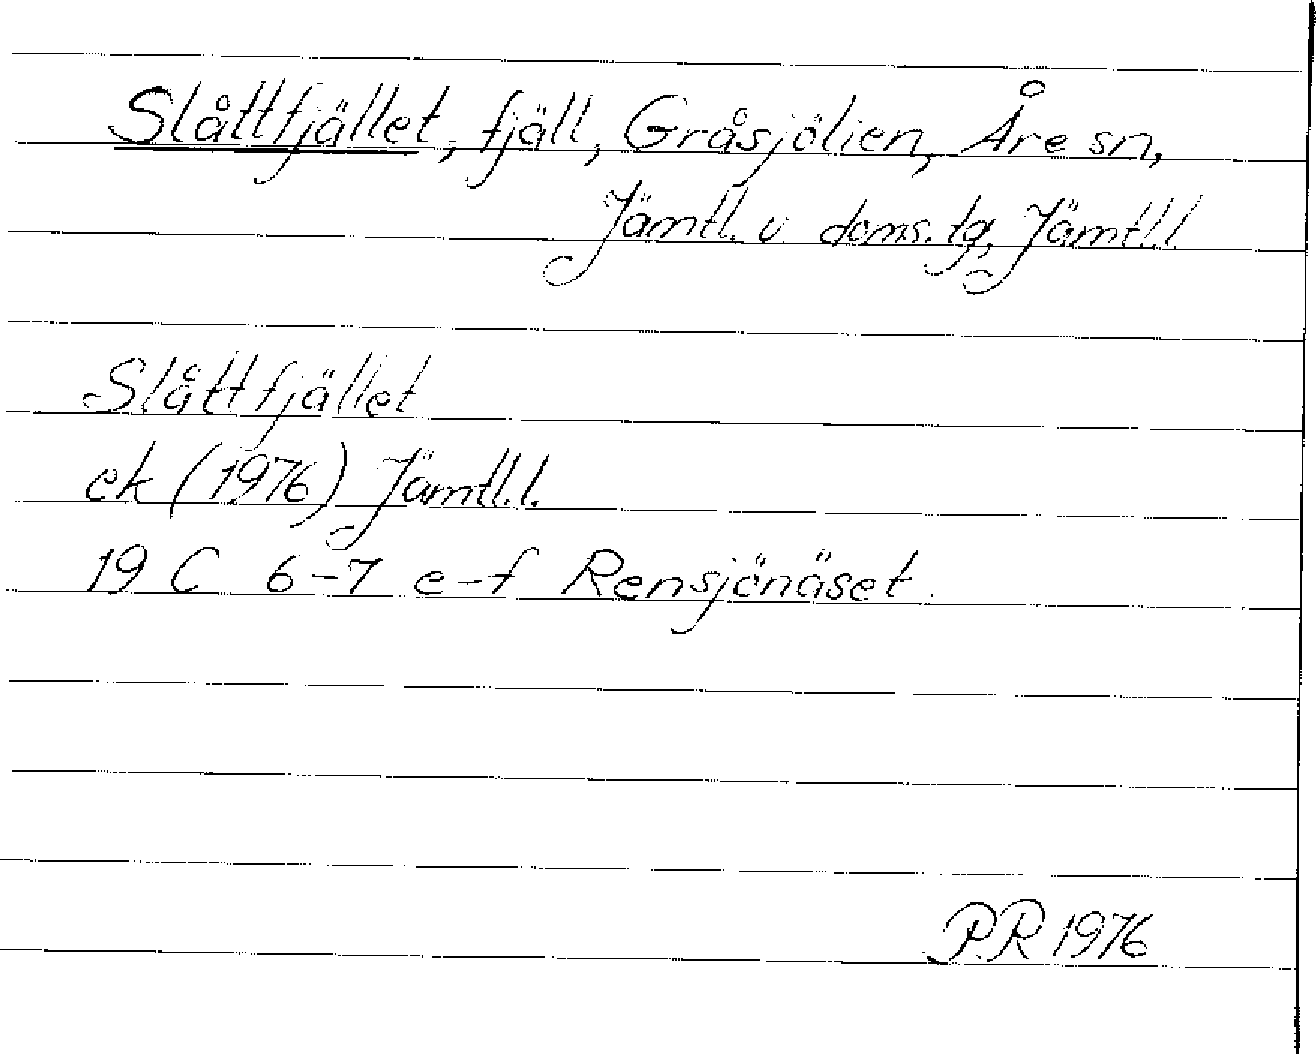 Slåttfjället, fjäll, Gråsjölien, Åre sn,
Jämtl. v. doms. tg, Jämtl.l.
Slåttfjället
ek (1976) Jämtl.l.
19 C 6-7 e-f Rensjönäset.
P.R 1976